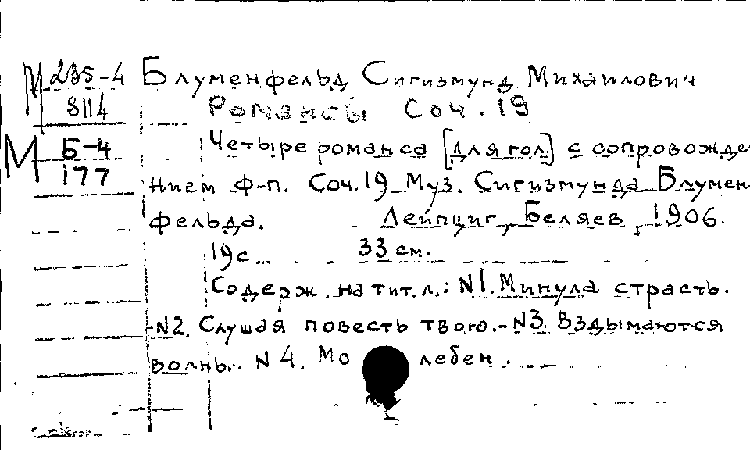 М 235-4 Блуменфельд Сигизмунд Михайлович
8114 Романсы Соч. 19
М Б-4 Четыре романса [для гол.] с сопровожде
177 нием ф-п. Соч. 19. Муз. Сигизмунда Блумен
фельда. Лейпциг, Беляев, 1906.
19с. 33 см.
Содерж. на тит. л.: N1. Минула страсть.
-N2. Слушая повесть твою.-N3. Вздымаются
волны. N4. Мо лебен.